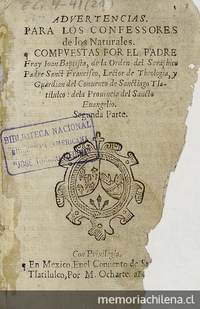 ADVERTENCIAS.
PARA LOS CONFESSORES
de los Naturales.
COMPVESTAS POR EL PADRE
Fray Ioan Baptista, de la Orden del Seraphico
Padre Sanct Francisco, Lector de Theologia, y
Guardian del Conuento de Sanctiago Tla-
tilulco: de la Prouincia del Sancto
Euangelio.
Segunda Parte.
BIBLIOTECA NACIONAL
BIBLIOTECA AMERICANA
"JOSÉ TORIBIO
Con Priuilegio.
En Mexico, En el Conuento de
Tlatilulco, Por M. Ocharte.
memoriachilena.cl